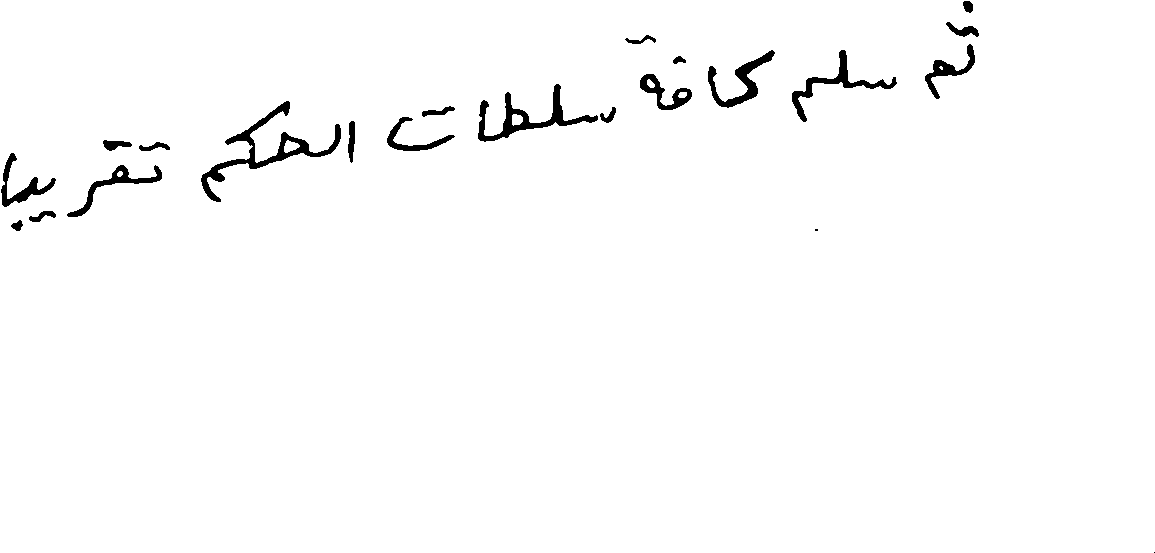 ثم سلم كافة سلطات الحكم تقريبا